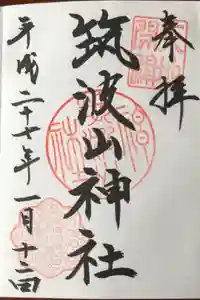 奉拝
筑波山神社
平成二十七年一月十二日